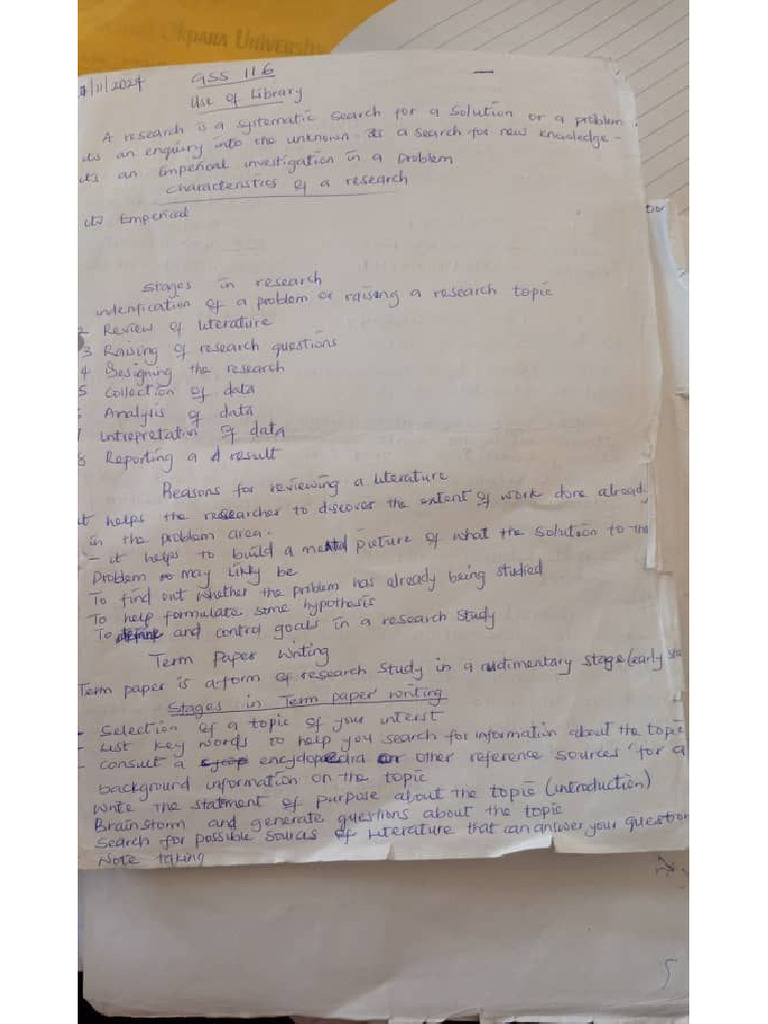 Okpara University
/11/2024 GSS 116
Use of Library
A research is a systematic search for a solution or a problem.
its an enquiry into the unknown its a search for new knowledge -
its an Emperical investigation in a problem
characteristics of a research
(1) Emperical
Stages in research
indenfication of a problem or raising a research topic
2 Review of literature
3 Raising of research questions
4 Designing the research
5 Collection of data
Analysis of data
Intrepretation of data
8 Reporting a d result
Reasons for reviewing a literature
it helps the researcher to discover the extent of work done already
in the problem area.
- it helps to build a mental picture of what the solution to the
Problem may likly be
To find out whether the problem has already being studied
To help formulate some hypothesis
To define and control goals in a research study
Term Paper Writing
Term paper is a form of research study in a rudimentary stage (early sta
Stages in Term paper writing
- Selection of a topic of your interst
- List key words to help you search for information about the topic
- consult a encyclopedia or other reference sources for a
background information on the topic
write the statment of purpose about the topic (introduction)
Brainstorm and generate questions about the topic
Search for possible sources of Literature that can answer your question
Note taking